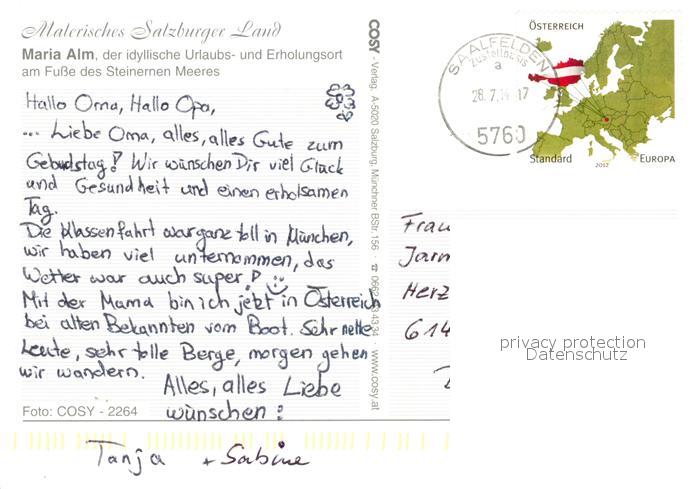 Malerisches Salzburger Land
Maria Alm, der idyllische Urlaubs- und Erholungsort
am Fuße des Steinernen Meeres
Hallo Oma, Hallo Opa,
... Liebe Oma, alles, alles Gute zum
Geburtstag! Wir wünschen Dir viel Glück
und Gesundheit und einen erholsamen
Tag.
Die Klassenfahrt war ganz toll in München,
wir haben viel unternommen, das
Wetter war auch super!
Mit der Mama bin ich jetzt in Österreich
bei alten Bekannten vom Boot. Sehr nette
Leute, sehr tolle Berge, morgen gehen
wir wandern.
Alles, alles Liebe
wünschen:
Foto: COSY - 2264
Tanja + Sabine
COSY - Verlag, A-5020 Salzburg, Münchner BStr. 156 · www.cosy.at
SAALFELDEN
Zustellbasis
a
28.7.14-17
5760
ÖSTERREICH
Standard
2012
EUROPA
Frau
Herz
614
privacy protection
Datenschutz